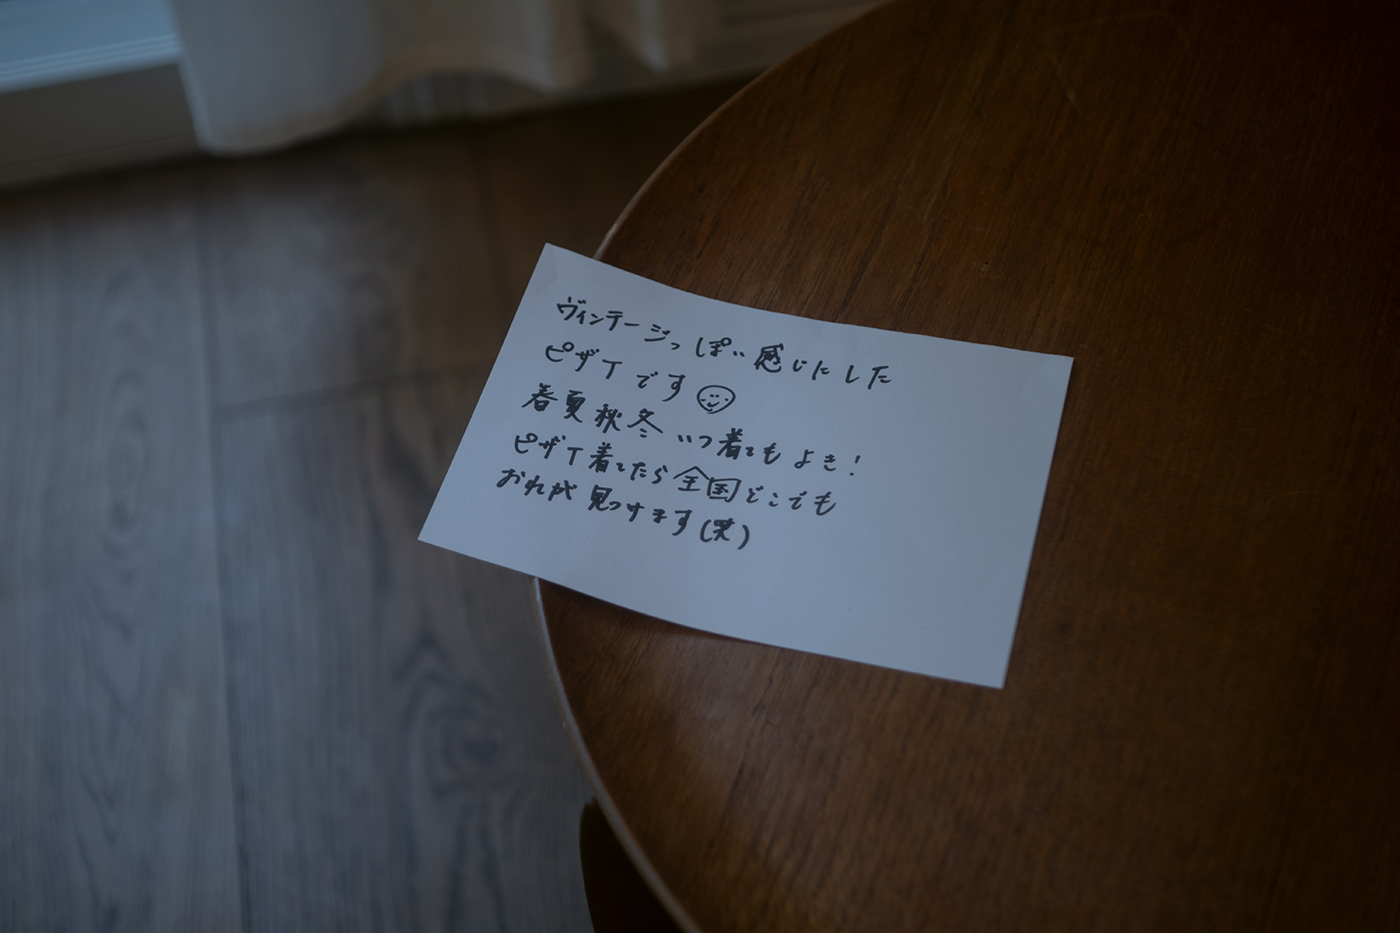 ヴィンテージっぽい感じにした
ピザTです
春夏秋冬いつ着てもよき!
ピザT着てたら全国どこでも
おれが見つけます(笑)